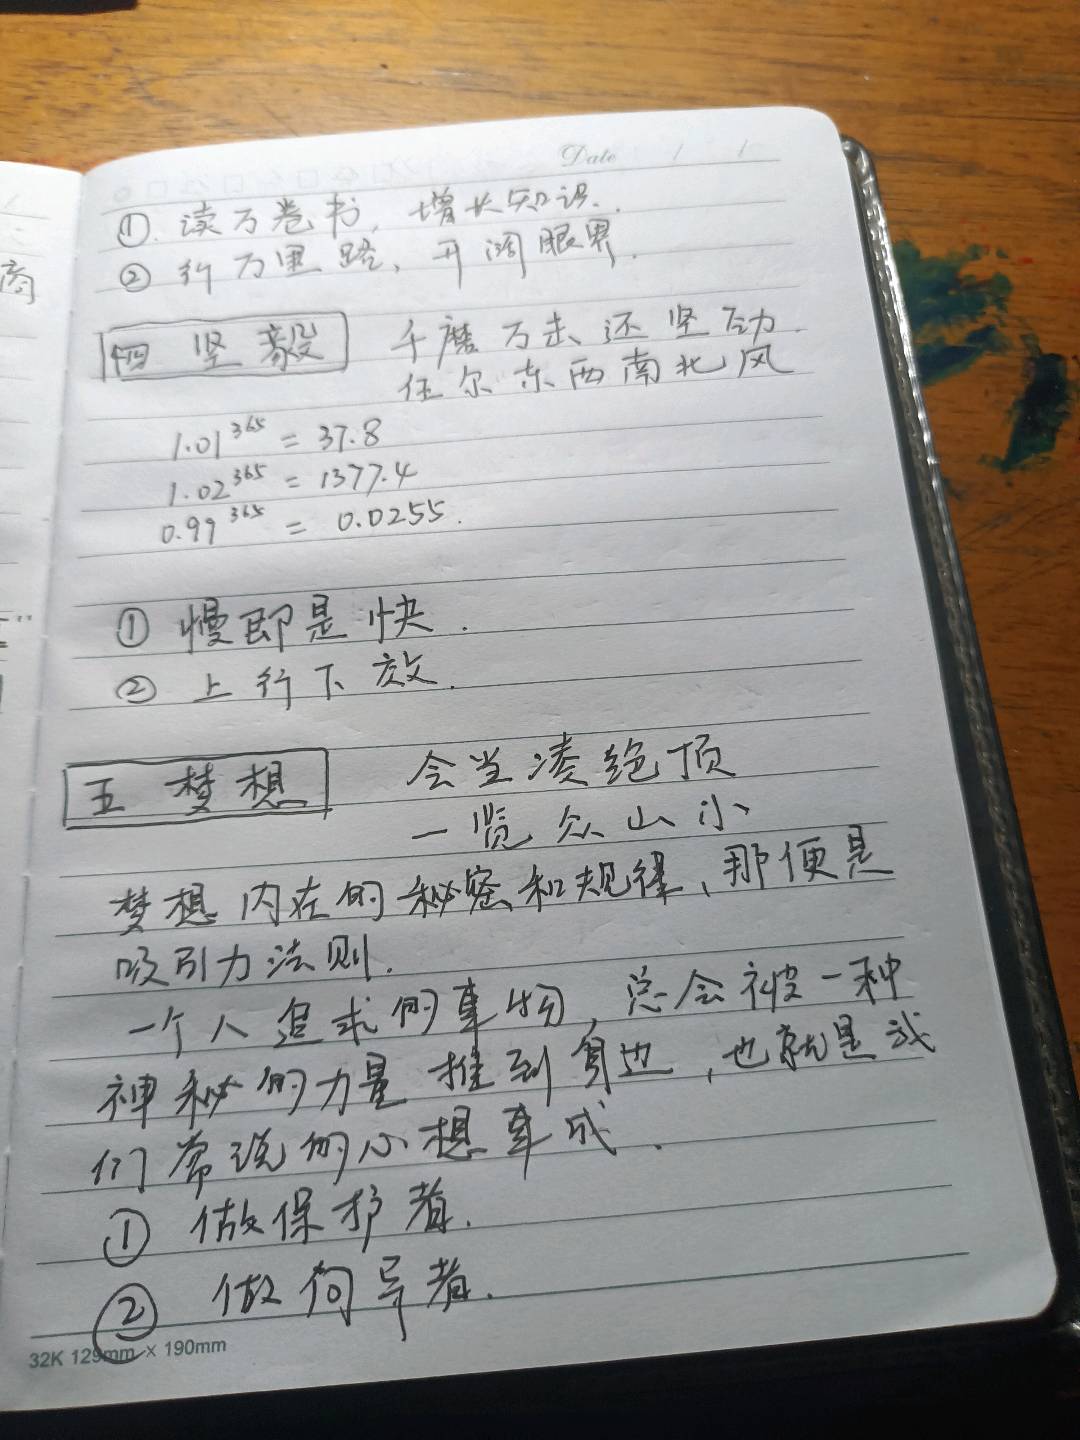 商
Date / /
①. 读万卷书, 增长知识.
② 行万里路, 开阔眼界.
四 坚毅
千磨万击还坚劲.
任尔东西南北风
1.01^365 = 37.8
1.02^365 = 1377.4
0.99^365 = 0.0255.
① 慢即是快.
② 上行下效.
五 梦想
会当凌绝顶
一览众山小
梦想内在的秘密和规律, 那便是
吸引力法则.
一个人追求的事物, 总会被一种
神秘的力量推到身边, 也就是我
们常说的心想事成.
① 做保护者.
② 做向导者.
32K 129mm × 190mm